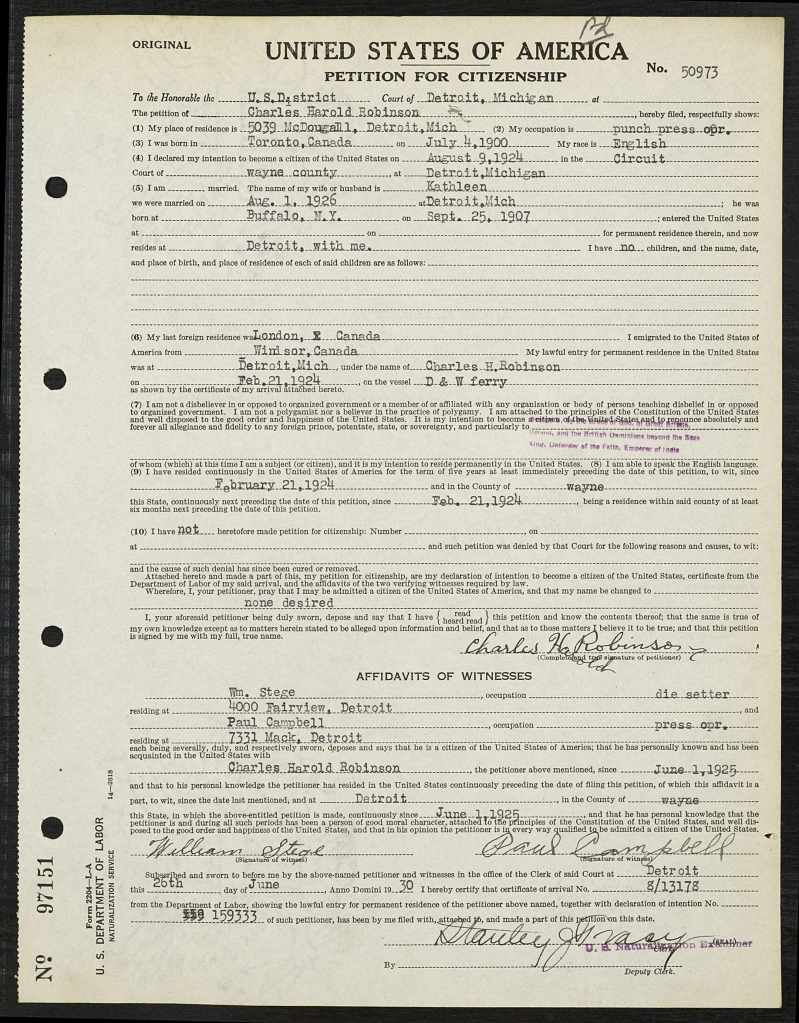 Pd
ORIGINAL
UNITED STATES OF AMERICA
No. 50973
PETITION FOR CITIZENSHIP
To the Honorable the U.S.District Court of Detroit, Michigan at
The petition of Charles Harold Robinson, hereby filed, respectfully shows:
(1) My place of residence is 5039 McDougall, Detroit,Mich (2) My occupation is punch press opr.
(3) I was born in Toronto,Canada on July 4,1900 My race is English
(4) I declared my intention to become a citizen of the United States on August 9,1924 in the Circuit
Court of wayne county, at Detroit,Michigan
(5) I am married. The name of my wife or husband is Kathleen
we were married on Aug. 1, 1926 at Detroit,Mich; he was
born at Buffalo, N.Y. on Sept. 25, 1907; entered the United States
at on for permanent residence therein, and now
resides at Detroit, with me. I have no children, and the name, date,
and place of birth, and place of residence of each of said children are as follows:
(6) My last foreign residence was London, Canada I emigrated to the United States of
America from Windsor,Canada My lawful entry for permanent residence in the United States
was at Detroit,Mich, under the name of Charles H.Robinson
on Feb.21,1924, on the vessel D & W ferry
as shown by the certificate of my arrival attached hereto.
(7) I am not a disbeliever in or opposed to organized government or a member of or affiliated with any organization or body of persons teaching disbelief in or opposed
to organized government. I am not a polygamist nor a believer in the practice of polygamy. I am attached to the principles of the Constitution of the United States
and well disposed to the good order and happiness of the United States. It is my intention to become a citizen of the United States and to renounce absolutely and
forever all allegiance and fidelity to any foreign prince, potentate, state, or sovereignty, and particularly to
Ireland, and the British Dominions beyond the Seas
King, Defender of the Faith, Emperor of India
of whom (which) at this time I am a subject (or citizen), and it is my intention to reside permanently in the United States. (8) I am able to speak the English language.
(9) I have resided continuously in the United States of America for the term of five years at least immediately preceding the date of this petition, to wit, since
February 21,1924 and in the County of wayne
this State, continuously next preceding the date of this petition, since Feb. 21,1924, being a residence within said county of at least
six months next preceding the date of this petition.
(10) I have not heretofore made petition for citizenship: Number, on
at and such petition was denied by that Court for the following reasons and causes, to wit:
and the cause of such denial has since been cured or removed.
Attached hereto and made a part of this, my petition for citizenship, are my declaration of intention to become a citizen of the United States, certificate from the
Department of Labor of my said arrival, and the affidavits of the two verifying witnesses required by law.
Wherefore, I, your petitioner, pray that I may be admitted a citizen of the United States of America, and that my name be changed to
none desired
I, your aforesaid petitioner being duly sworn, depose and say that I have { read heard read } this petition and know the contents thereof; that the same is true of
my own knowledge except as to matters herein stated to be alleged upon information and belief, and that as to those matters I believe it to be true; and that this petition
is signed by me with my full, true name.
Charles Harold Robinson
(Complete and true signature of petitioner)
AFFIDAVITS OF WITNESSES
Wm. Stege, occupation die setter
residing at 4000 Fairview, Detroit, and
Paul Campbell, occupation press opr.
residing at 7331 Mack, Detroit
each being severally, duly, and respectively sworn, deposes and says that he is a citizen of the United States of America; that he has personally known and has been
acquainted in the United States with
Charles Harold Robinson, the petitioner above mentioned, since June 1,1925
and that to his personal knowledge the petitioner has resided in the United States continuously preceding the date of filing this petition, of which this affidavit is a
part, to wit, since the date last mentioned, and at Detroit, in the County of wayne
this State, in which the above-entitled petition is made, continuously since June 1,1925, and that he has personal knowledge that the
petitioner is and during all such periods has been a person of good moral character, attached to the principles of the Constitution of the United States, and well dis-
posed to the good order and happiness of the United States, and that in his opinion the petitioner is in every way qualified to be admitted a citizen of the United States.
William Stege Paul Campbell
(Signature of witness) (Signature of witness)
Subscribed and sworn to before me by the above-named petitioner and witnesses in the office of the Clerk of said Court at Detroit
this 26th day of June, Anno Domini 1930 I hereby certify that certificate of arrival No. 8/13178
from the Department of Labor, showing the lawful entry for permanent residence of the petitioner above named, together with declaration of intention No.
159333 of such petitioner, has been by me filed with, attached to, and made a part of this petition on this date.
Stanley J Tracy
U. S. Naturalization Examiner
(SEAL)
By
Deputy Clerk.
Nº 97151
Form 2204-L-A
U. S. DEPARTMENT OF LABOR
NATURALIZATION SERVICE
14-2618